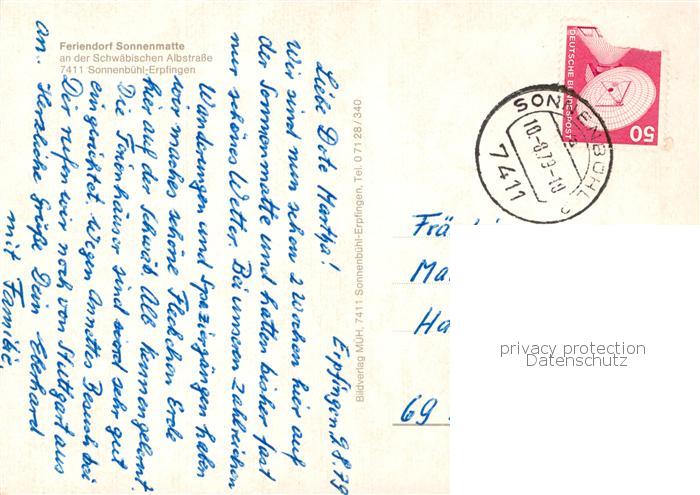 Feriendorf Sonnenmatte
an der Schwäbischen Albstraße
7411 Sonnenbühl-Erpfingen
Erpfingen 9.8.79
Liebe Dote Martha!
Wir sind nun schon 2 Wochen hier auf
der Sonnenmatte und hatten bisher fast
nur schönes Wetter. Bei unseren zahlreichen
Wanderungen und Spaziergängen haben
wir manches schöne Fleckchen Erde
hier auf der Schwäb. Alb kennengelernt.
Die Ferienhäuser sind sehr gut
eingerichtet. Wegen Annettes Besuch bei
Dir rufen wir noch von Stuttgart aus
an. Herzliche Grüße Dein Eberhard
mit Familie.
Bildverlag MÜH, 7411 Sonnenbühl-Erpfingen, Tel. 0 71 28 / 340
DEUTSCHE BUNDESPOST
50
SONNENBÜHL
10.-8.79-10
7411
Frä
Ma
Ha
69
privacy protection
Datenschutz